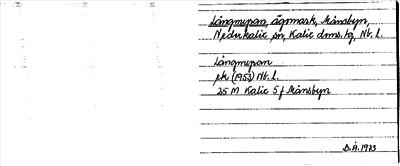 Långmyran, ägomark, Månsbyn,
Nederkalix sn, Kalix dms. tg, Nb. l.
Långmyran
pk (1953) Nb. l.
25 M Kalix 5 f Månsbyn
B.Å. 1973